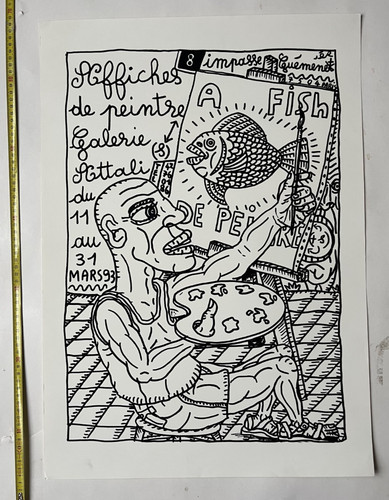 Affiches
de peintre
Galerie
Attali
du
11
au
31
MARS 93
8 impasse Guéménet
A FISH
DE PEINTRE